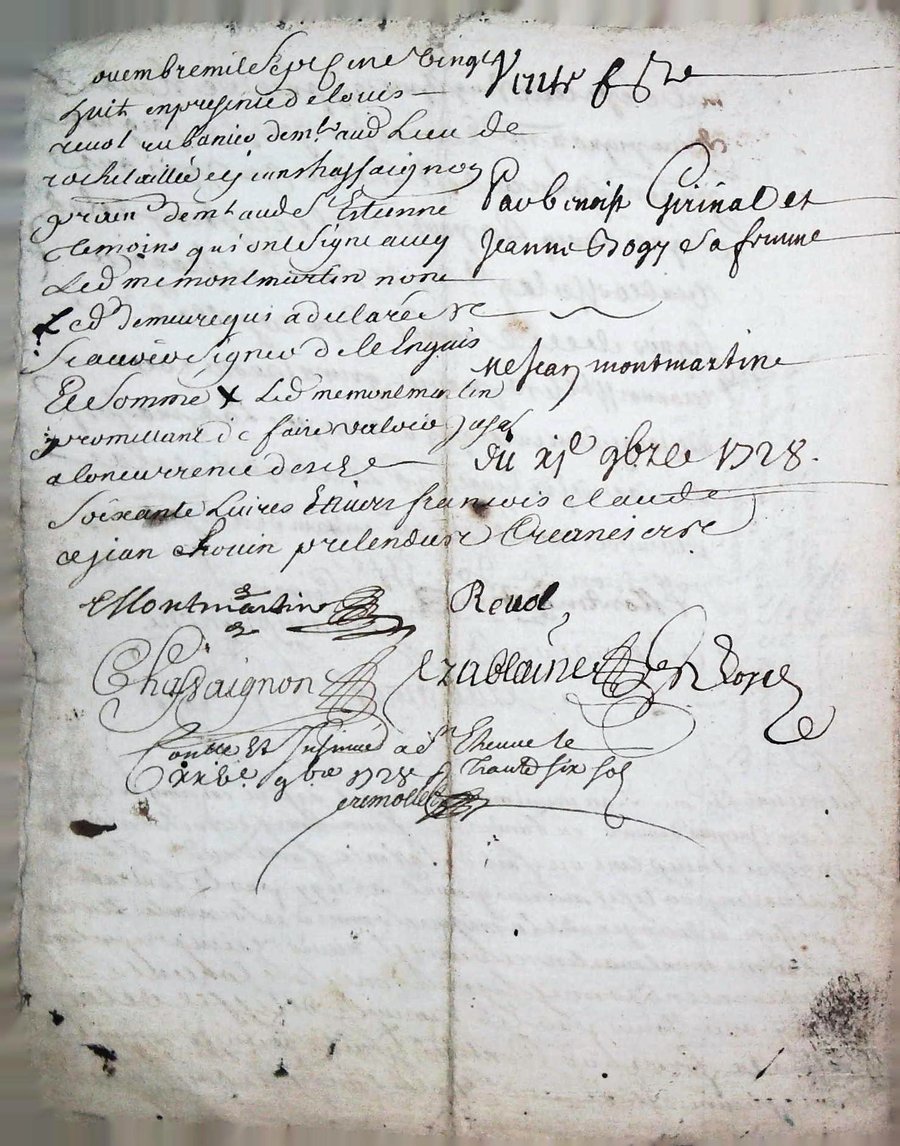 ouembre mil sept cens vingt
huit en presence de louis
reuol rubanier demt aud Lieu de
rochetaillée et jean chassaignon
praticn demt aud St Estienne
temoins qui ont signé avecq
Led me montmartin non
Led demeure qui a declaré ne
scauoir signer de ce Enquis
Et Somme x Led me montmartin
promettant de faire valoir jusq
a concurrence de
Soixante Liures Enuers francois claude
et jean Chouin pretendus Creanciers
Vente
Par benoist Girinat et
Jeanne Bogy sa femme
Me Jean montmartine
du xje 9bre 1728.
Montmartin Reuol
Chassaignon
Conttlé Et Insinué a St Etienne le
9bre 1728